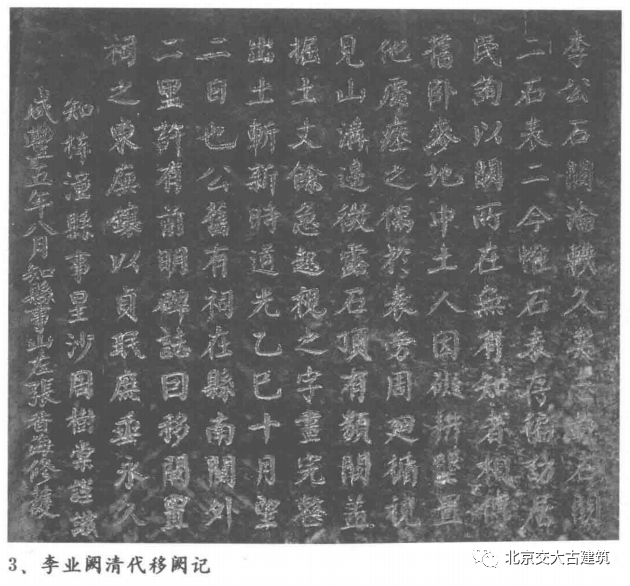 李公石闕淪軼久矣石闕
二石表二今惟石表存循訪居
民詢以闕所在無有知者相傳
舊臥麥地中土人因礙耕墾置
他處瘞之偶於表旁周迴循視
見山溝邊微露石頂有類闕蓋
掘土丈餘急起視之字畫完整
出土斬新時道光乙巳十月望
二日也公舊有祠在縣南關外
二里許有前明碑誌曰移闕置
祠之東廡鑲以貞珉庶垂永久
知梓潼縣事星沙周樹棠謹識
咸豐五年八月知縣事山左張香海修護
3、李业阙清代移阙记
北京交大古建筑